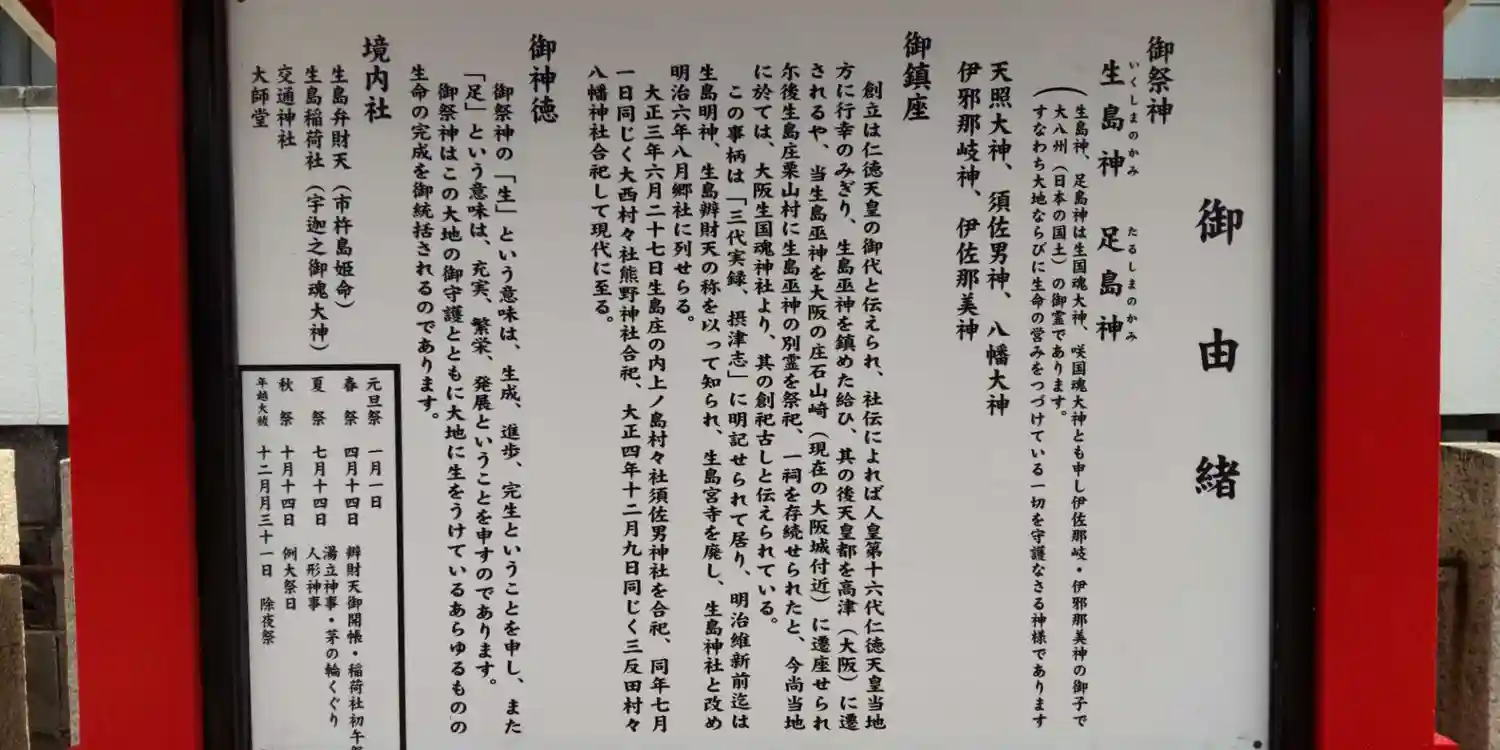 御由緒
御祭神
いくしまのかみ たるしまのかみ
生島神 足島神
(生島神、足島神は生国魂大神、咲国魂大神とも申し伊佐那岐・伊邪那美神の御子で
大八州(日本の国土)の御霊であります。
すなわち大地ならびに生命の営みをつづけている一切を守護なさる神様であります
天照大神、須佐男神、八幡大神
伊邪那岐神、伊佐那美神
御鎮座
創立は仁徳天皇の御代と伝えられ、社伝によれば人皇第十六代仁徳天皇当地
方に行幸のみぎり、生島巫神を鎮めた給ひ、其の後天皇都を高津(大阪)に遷
されるや、当生島巫神を大阪の庄石山崎(現在の大阪城付近)に遷座せられ
尓後生島庄栗山村に生島巫神の別霊を祭祀、一祠を存続せられたと、今尚当地
に於ては、大阪生国魂神社より、其の創祀古しと伝えられている。
この事柄は「三代実録、摂津志」に明記せられて居り、明治維新前迄は
生島明神、生島辨財天の称を以って知られ、生島宮寺を廃し、生島神社と改め
明治六年八月郷社に列せらる。
大正三年六月二十七日生島庄の内上ノ島村々社須佐男神社を合祀、同年七月
一日同じく大西村々社熊野神社合祀、大正四年十二月九日同じく三反田村々
八幡神社合祀して現代に至る。
御神徳
御祭神の「生」という意味は、生成、進歩、完生ということを申し、また
「足」という意味は、充実、繁栄、発展ということを申すのであります。
御祭神はこの大地の御守護とともに大地に生をうけているあらゆるものの
生命の完成を御統括されるのであります。
境内社
生島弁財天(市杵島姫命)
生島稲荷社(宇迦之御魂大神)
交通神社
大師堂
元旦祭 一月一日
春祭 四月十四日 辨財天御開帳・稲荷社初午祭
夏祭 七月十四日 湯立神事・茅の輪くぐり
人形神事
秋祭 十月十四日 例大祭日
年越大祓 十二月月三十一日 除夜祭